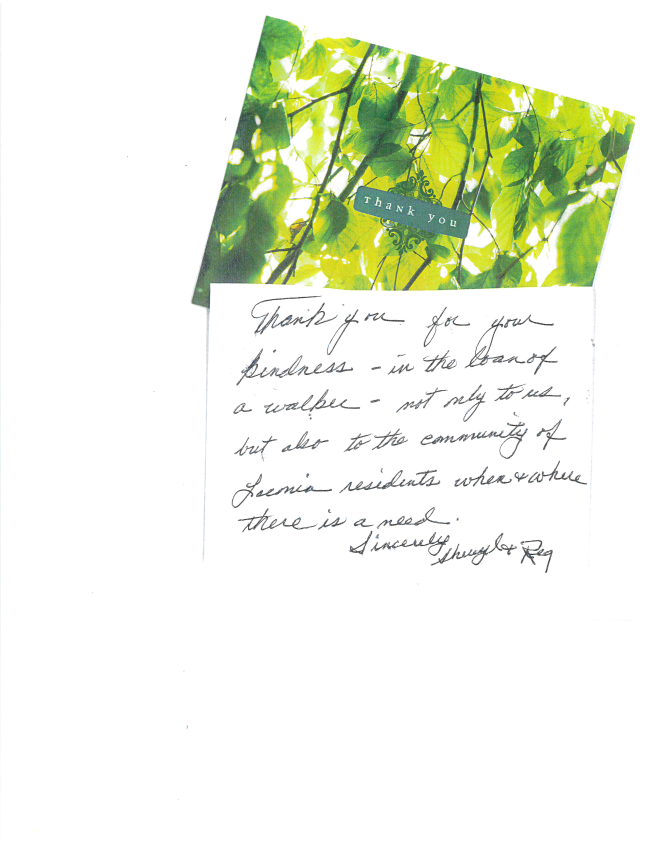 thank you
Thank you for your
kindness - in the loan of
a walker - not only to us,
but also to the community of
Laconia residents when & where
there is a need.
Sincerely,
Sheryl & Reg